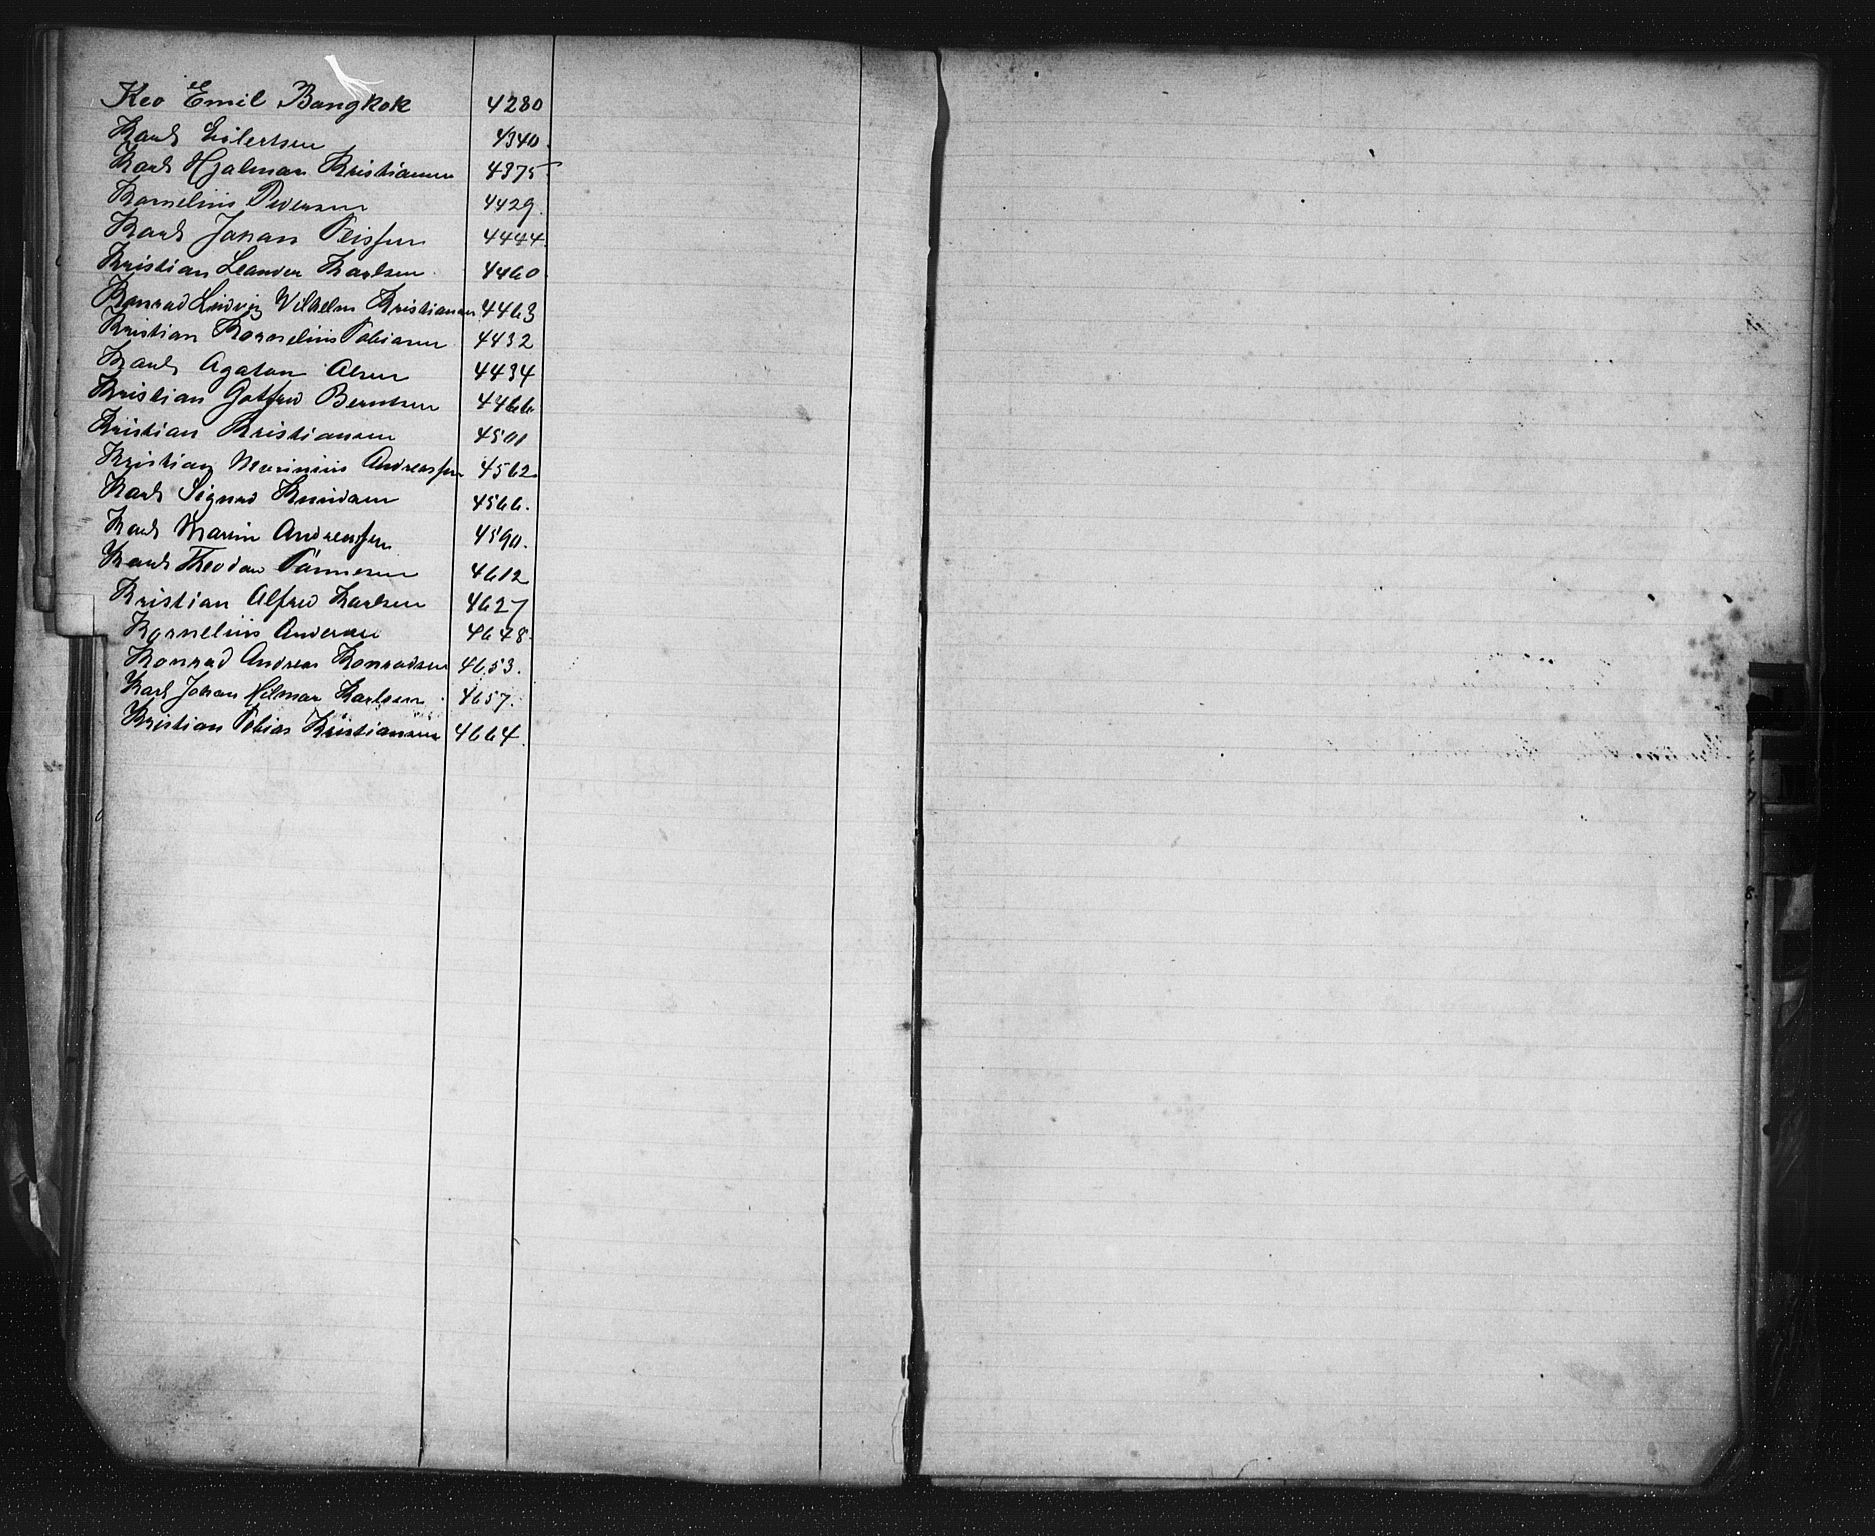 Keo Emil Bangkok 4280
Karl Eilertsen 4340.
Karl Hjalmar Kristiansen 4375
Kornelius Pedersen 4429.
Karl Johan 4444.
Kristian Leander Karlsen 4460.
Konrad Ludvig Vilhelm Kristiansen 4463
Kristian Kornelius Tobiasen 4432
Karl Agaton Olsen 4434
Kristian Gotfred Berntsen 4466
Kristian Kristiansen 4501
Kristian Marinius Andreassen 4562.
Karl Sigurd Knudsen 4566.
Karl Marin Andreassen 4590.
Karl Theodor Tønnesen 4612
Kristian Alfred Karlsen 4627
Kornelius Andersen 4648.
Konrad Andreas Konradsen 4653.
Karl Johan Hilmar Karlsen 4657.
Kristian Tobias Kristiansen 4664.